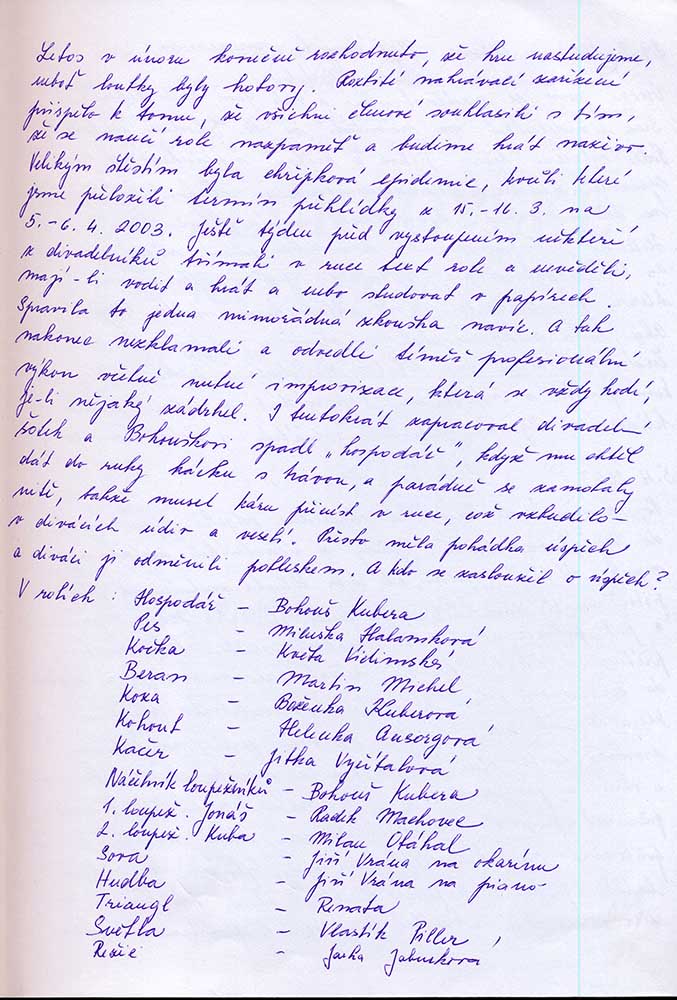 Letos v únoru konečně rozhodnuto, že hru nastudujeme,
neboť loutky byly hotovy. Rozbité nahrávací zařízení
přispělo k tomu, že všichni členové souhlasili s tím,
že se naučí role nazpaměť a budeme hrát naživo.
Velikým štěstím byla chřipková epidemie, kvůli které
jsme přeložili termín přehlídky z 15.-16. 3. na
5.-6. 4. 2003. Ještě týden před vystoupením někteří
z divadelníků třímali v ruce text role a nevěděli,
mají-li vodit a hrát a nebo studovat v papírech.
Spravila to jedna mimořádná zkouška navíc. A tak
nakonec nezklamali a odvedli téměř profesionální
výkon včetně nutné improvizace, která se vždy hodí,
je-li nějaký zádrhel. I tentokrát zapracoval divadelní
šotek a Bohouškovi spadl „hospodář", když mu chtěl
dát do ruky kárku s trávou, a parádně se zamotaly
nitě, takže musel káru přinést v ruce, což vzbudilo-
v divácích údiv a veselí. Přesto měla pohádka úspěch
a diváci ji odměnili potleskem. A kdo se zasloužil o úspěch?
V rolích : Hospodář - Bohouš Kubera
Pes - Miluška Halamková
Kočka - Květa Vidimská
Beran - Martin Michel
Koza - Boženka Kuberová
Kohout - Helenka Ansorgová
Kačer - Jitka Vyčítalová
Náčelník loupežníků - Bohouš Kubera
1. loupež. Jonáš - Radek Machovec
2. loupež. Kuba - Milan Otáhal
Sova - Jiří Vrána na okarínu
Hudba - Jiří Vrána na piano-
Triangl - Renata
Světla - Vlastík Piller
Režie - Jarka